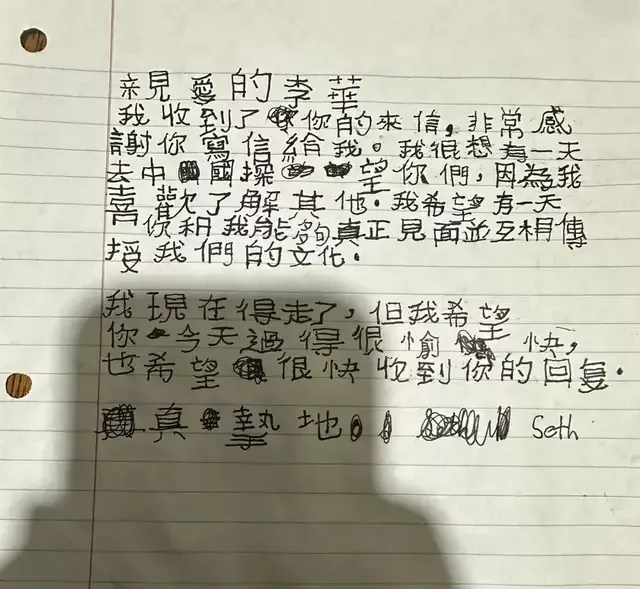 親愛的李華
我收到了你的來信,非常感
謝你寫信給我。我很想有一天
去中國探望你們,因為我
喜歡了解其他.我希望有一天
你和我能夠真正見面並互相傳
授我們的文化.
我現在得走了,但我希望
你今天過得很愉快,
也希望很快收到你的回复.
真摯地 Seth